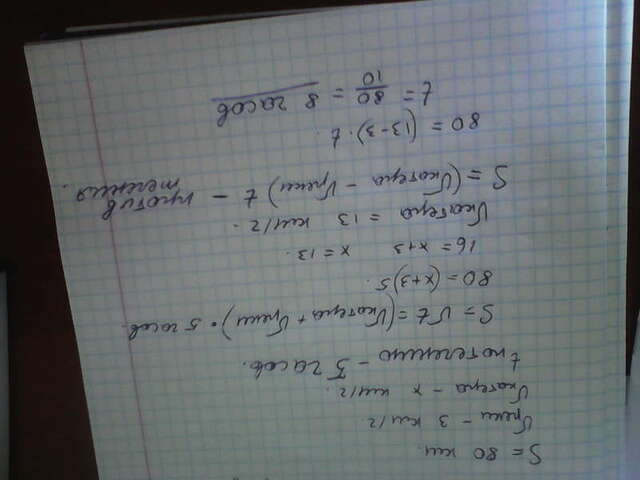 S = 80 км.
Vреки – 3 км/г.
Vкатера – x км/г.
t по течению – 5 часов.
S = Vt = (Vкатера + Vреки) · 5 часов.
80 = (x+3)5.
16 = x+3    x = 13.
Vкатера = 13 км/г.
S = (Vкатера – Vреки) t – против течения.
80 = (13-3)·t.
t = 80/10 = 8 часов